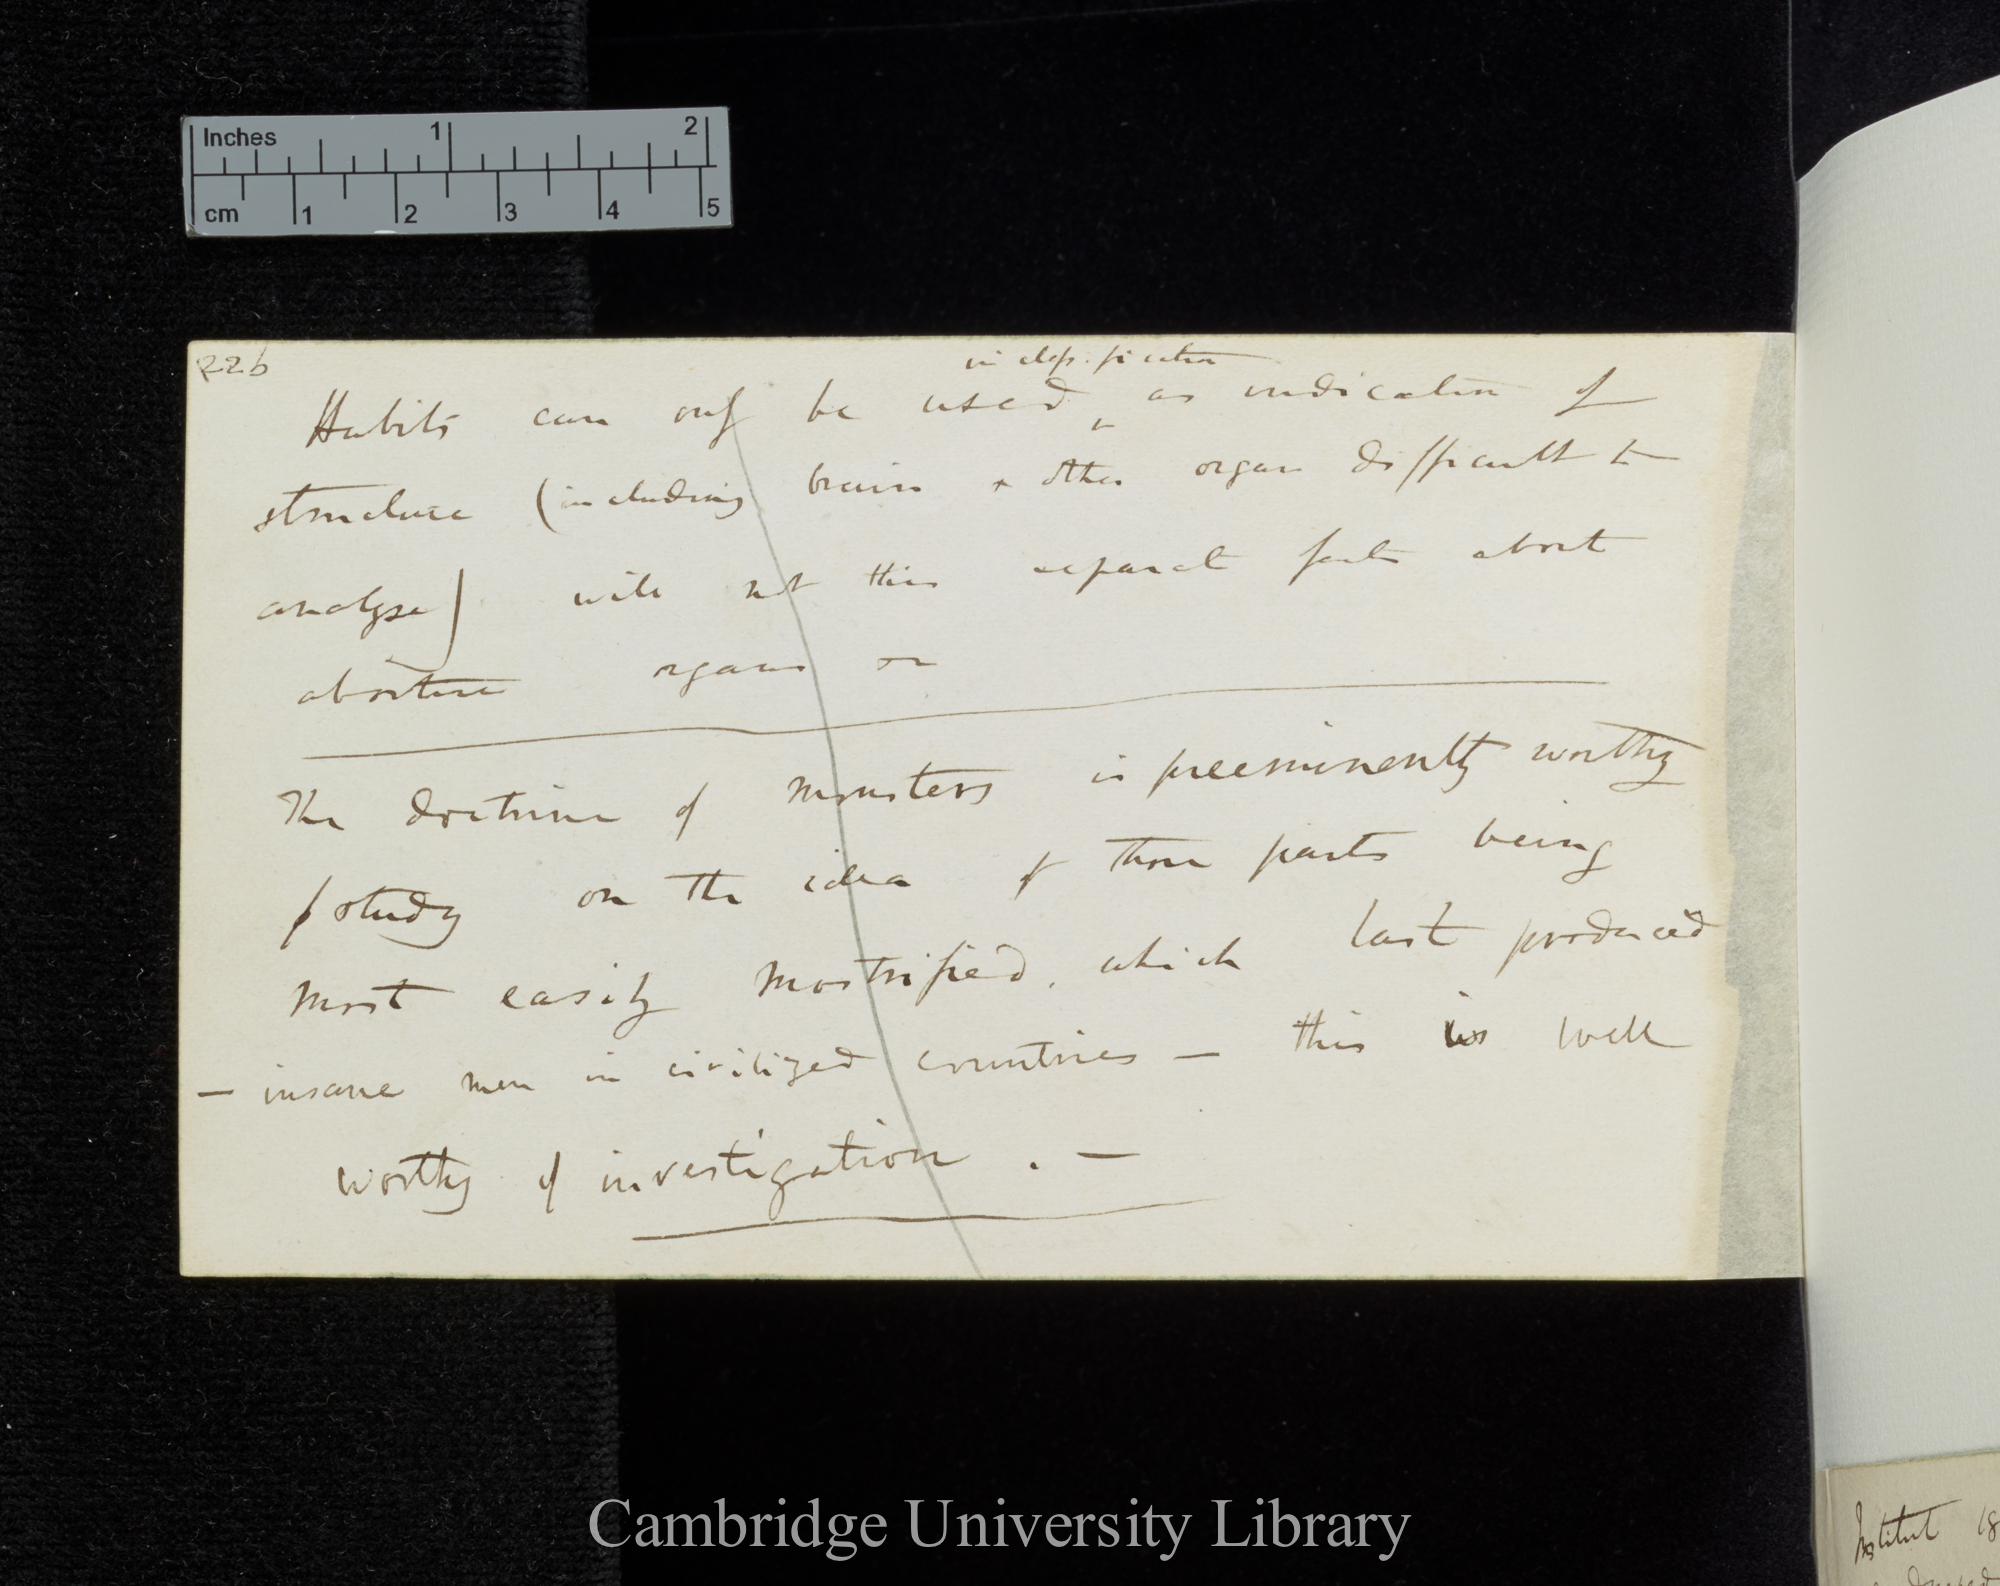 Inches 1 2
cm 1 2 3 4 5
226
in classification
Habits can only be used as indication of
structure (including brain & other organ difficult to
analyse) will not this separate facts about
abortive organs or
The doctrine of monsters is preeminently worthy
of study on the idea of those parts being
most easily monstrified, which last produced
— insane men in civilized countries — this is well
worthy of investigation. —
Institut 18
Cambridge University Library